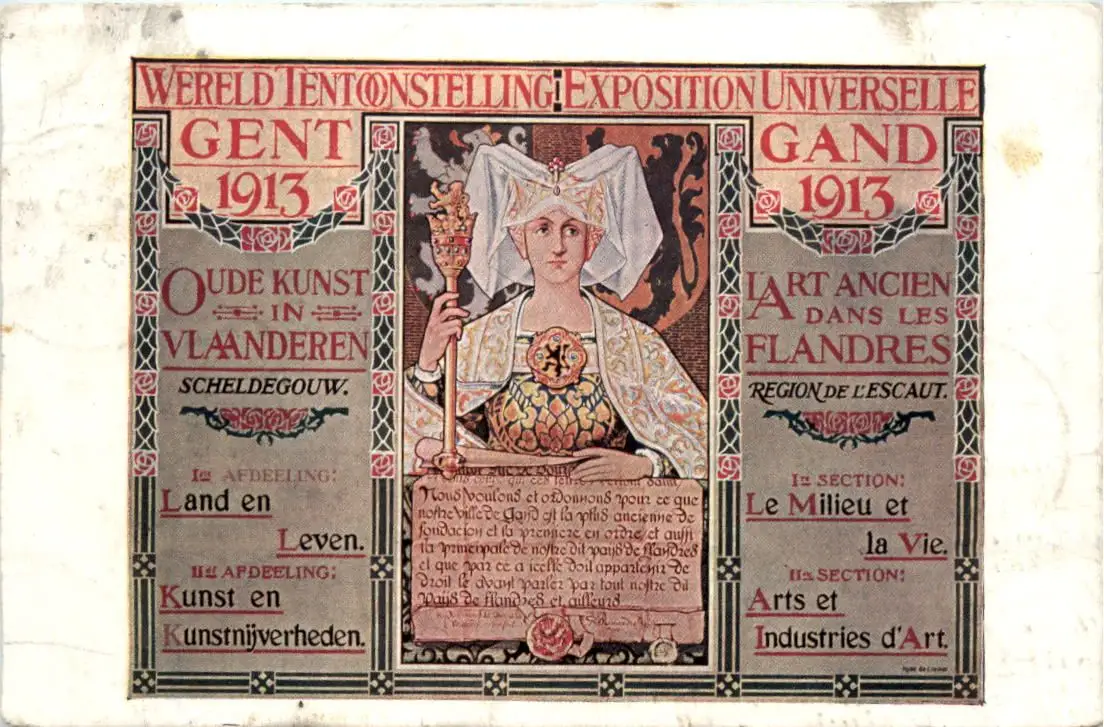 WERELD TENTOONSTELLING: EXPOSITION UNIVERSELLE
GENT
1913
OUDE KUNST
IN
VLAANDEREN
SCHELDEGOUW.
Iste AFDEELING:
Land en
Leven.
IIde AFDEELING:
Kunst en
Kunstnijverheden.
Nous voulons et ordonnons pour ce que
nostre ville de Gand est la plus ancienne de
fondacion et la premiere en ordre et aussi
la principale de nostre dit pays de flandres
et que par ce a icelle doit appartenir de
droit le avant parler par tout nostre dit
pays de flandres et ailleurs
GAND
1913
L'ART ANCIEN
DANS LES
FLANDRES
REGION DE L'ESCAUT.
Ire SECTION:
Le Milieu et
la Vie.
IIe SECTION:
Arts et
Industries d'Art.